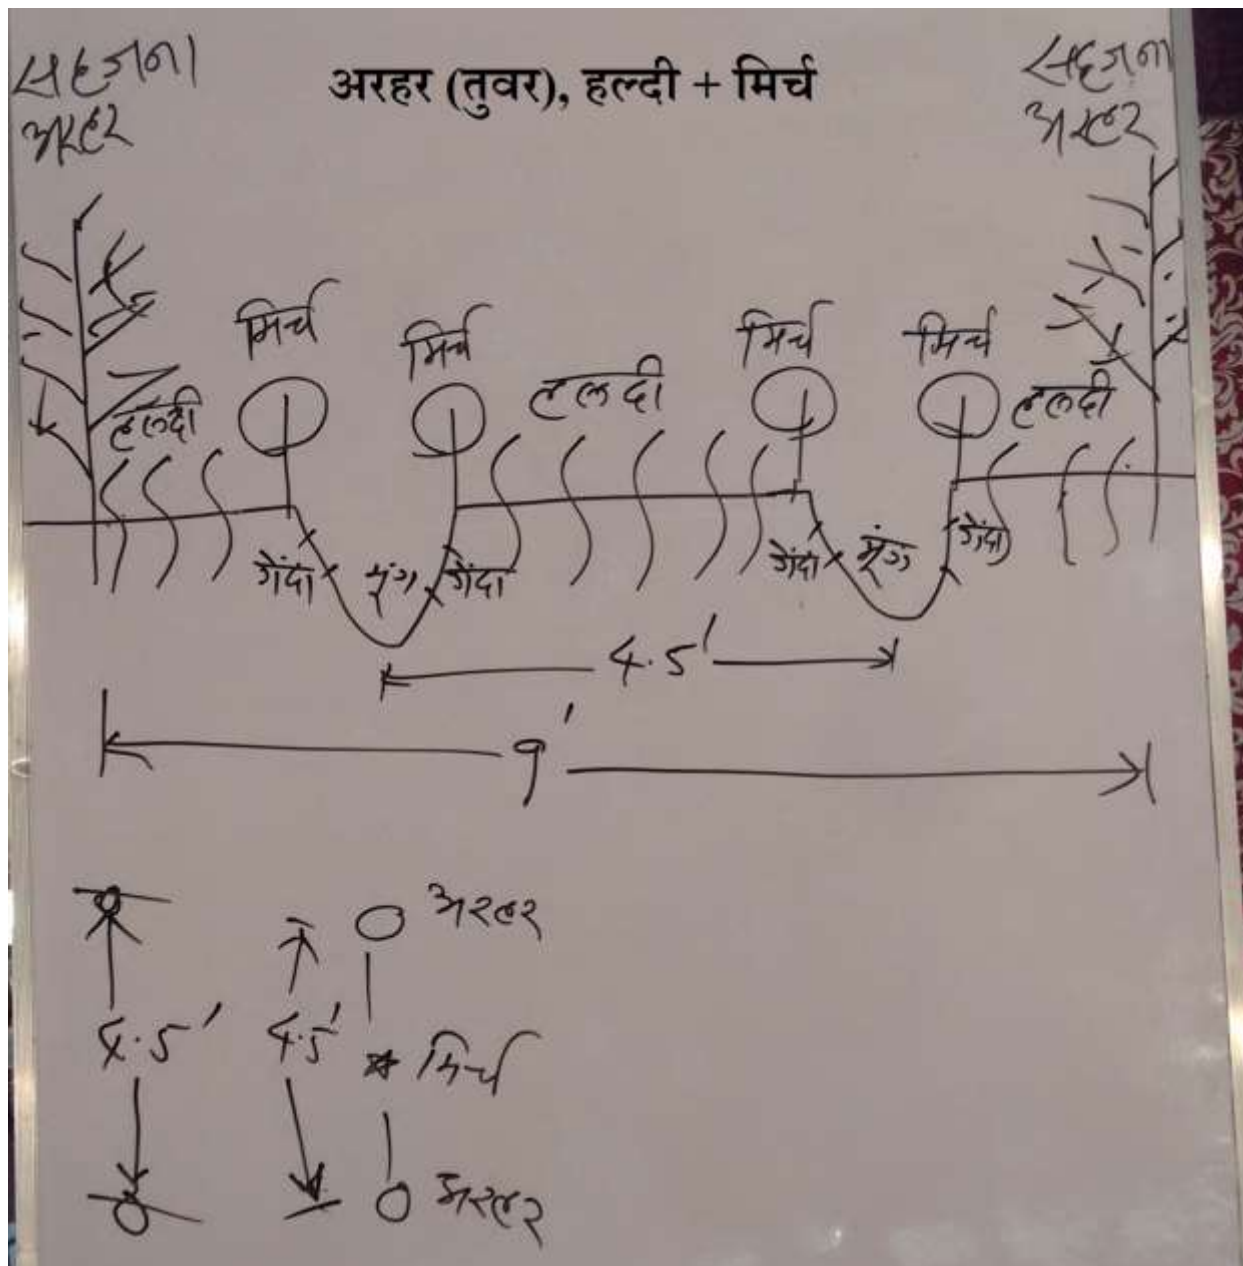 सहजना
अरहर
अरहर (तुवर), हल्दी + मिर्च
सहजना
अरहर
मिर्च
मिर्च
मिर्च
मिर्च
हलदी
हलदी
हलदी
गेंदा
मूंग
गेंदा
गेंदा
मूंग
गेंदा
4.5'
9'
अरहर
4.5'
4.5'
मिर्च
अरहर